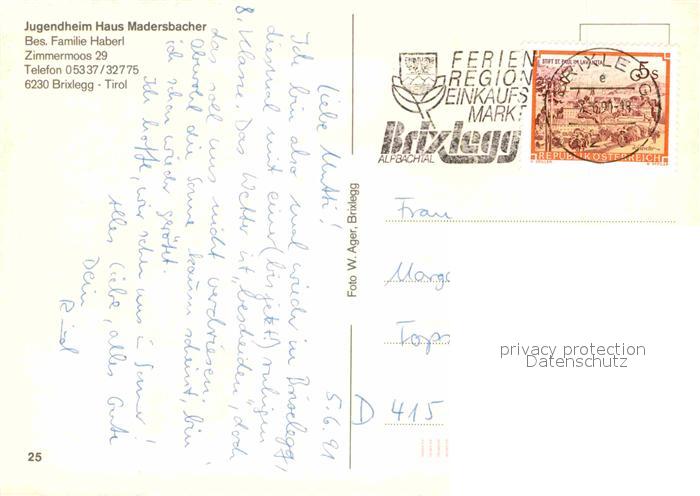 Jugendheim Haus Madersbacher
Bes. Familie Haberl
Zimmermoos 29
Telefon 05337/32775
6230 Brixlegg - Tirol
5.6.91
Liebe Mutti!
Ich bin also mal wieder in Brixlegg,
diesmal mit einer (bis jetzt) ruhigen
8. Klasse. Das Wetter ist "bescheiden", doch
das soll uns nicht verdriesen;
obwohl die Sonne kaum scheint, bin
ich schon wieder gerötet.
Ich hoffe, wir sehen uns i. Sommer!
Alles Liebe, alles Gute
Dein
25
Foto W. Ager, Brixlegg
FERIEN
REGION
EINKAUFS
MARKT
Brixlegg
ALPBACHTAL
STIFT ST. PAUL IM LAVANTTAL
5 S
REPUBLIK ÖSTERREICH
Frau
Marg
Tops
D 415
privacy protection
Datenschutz